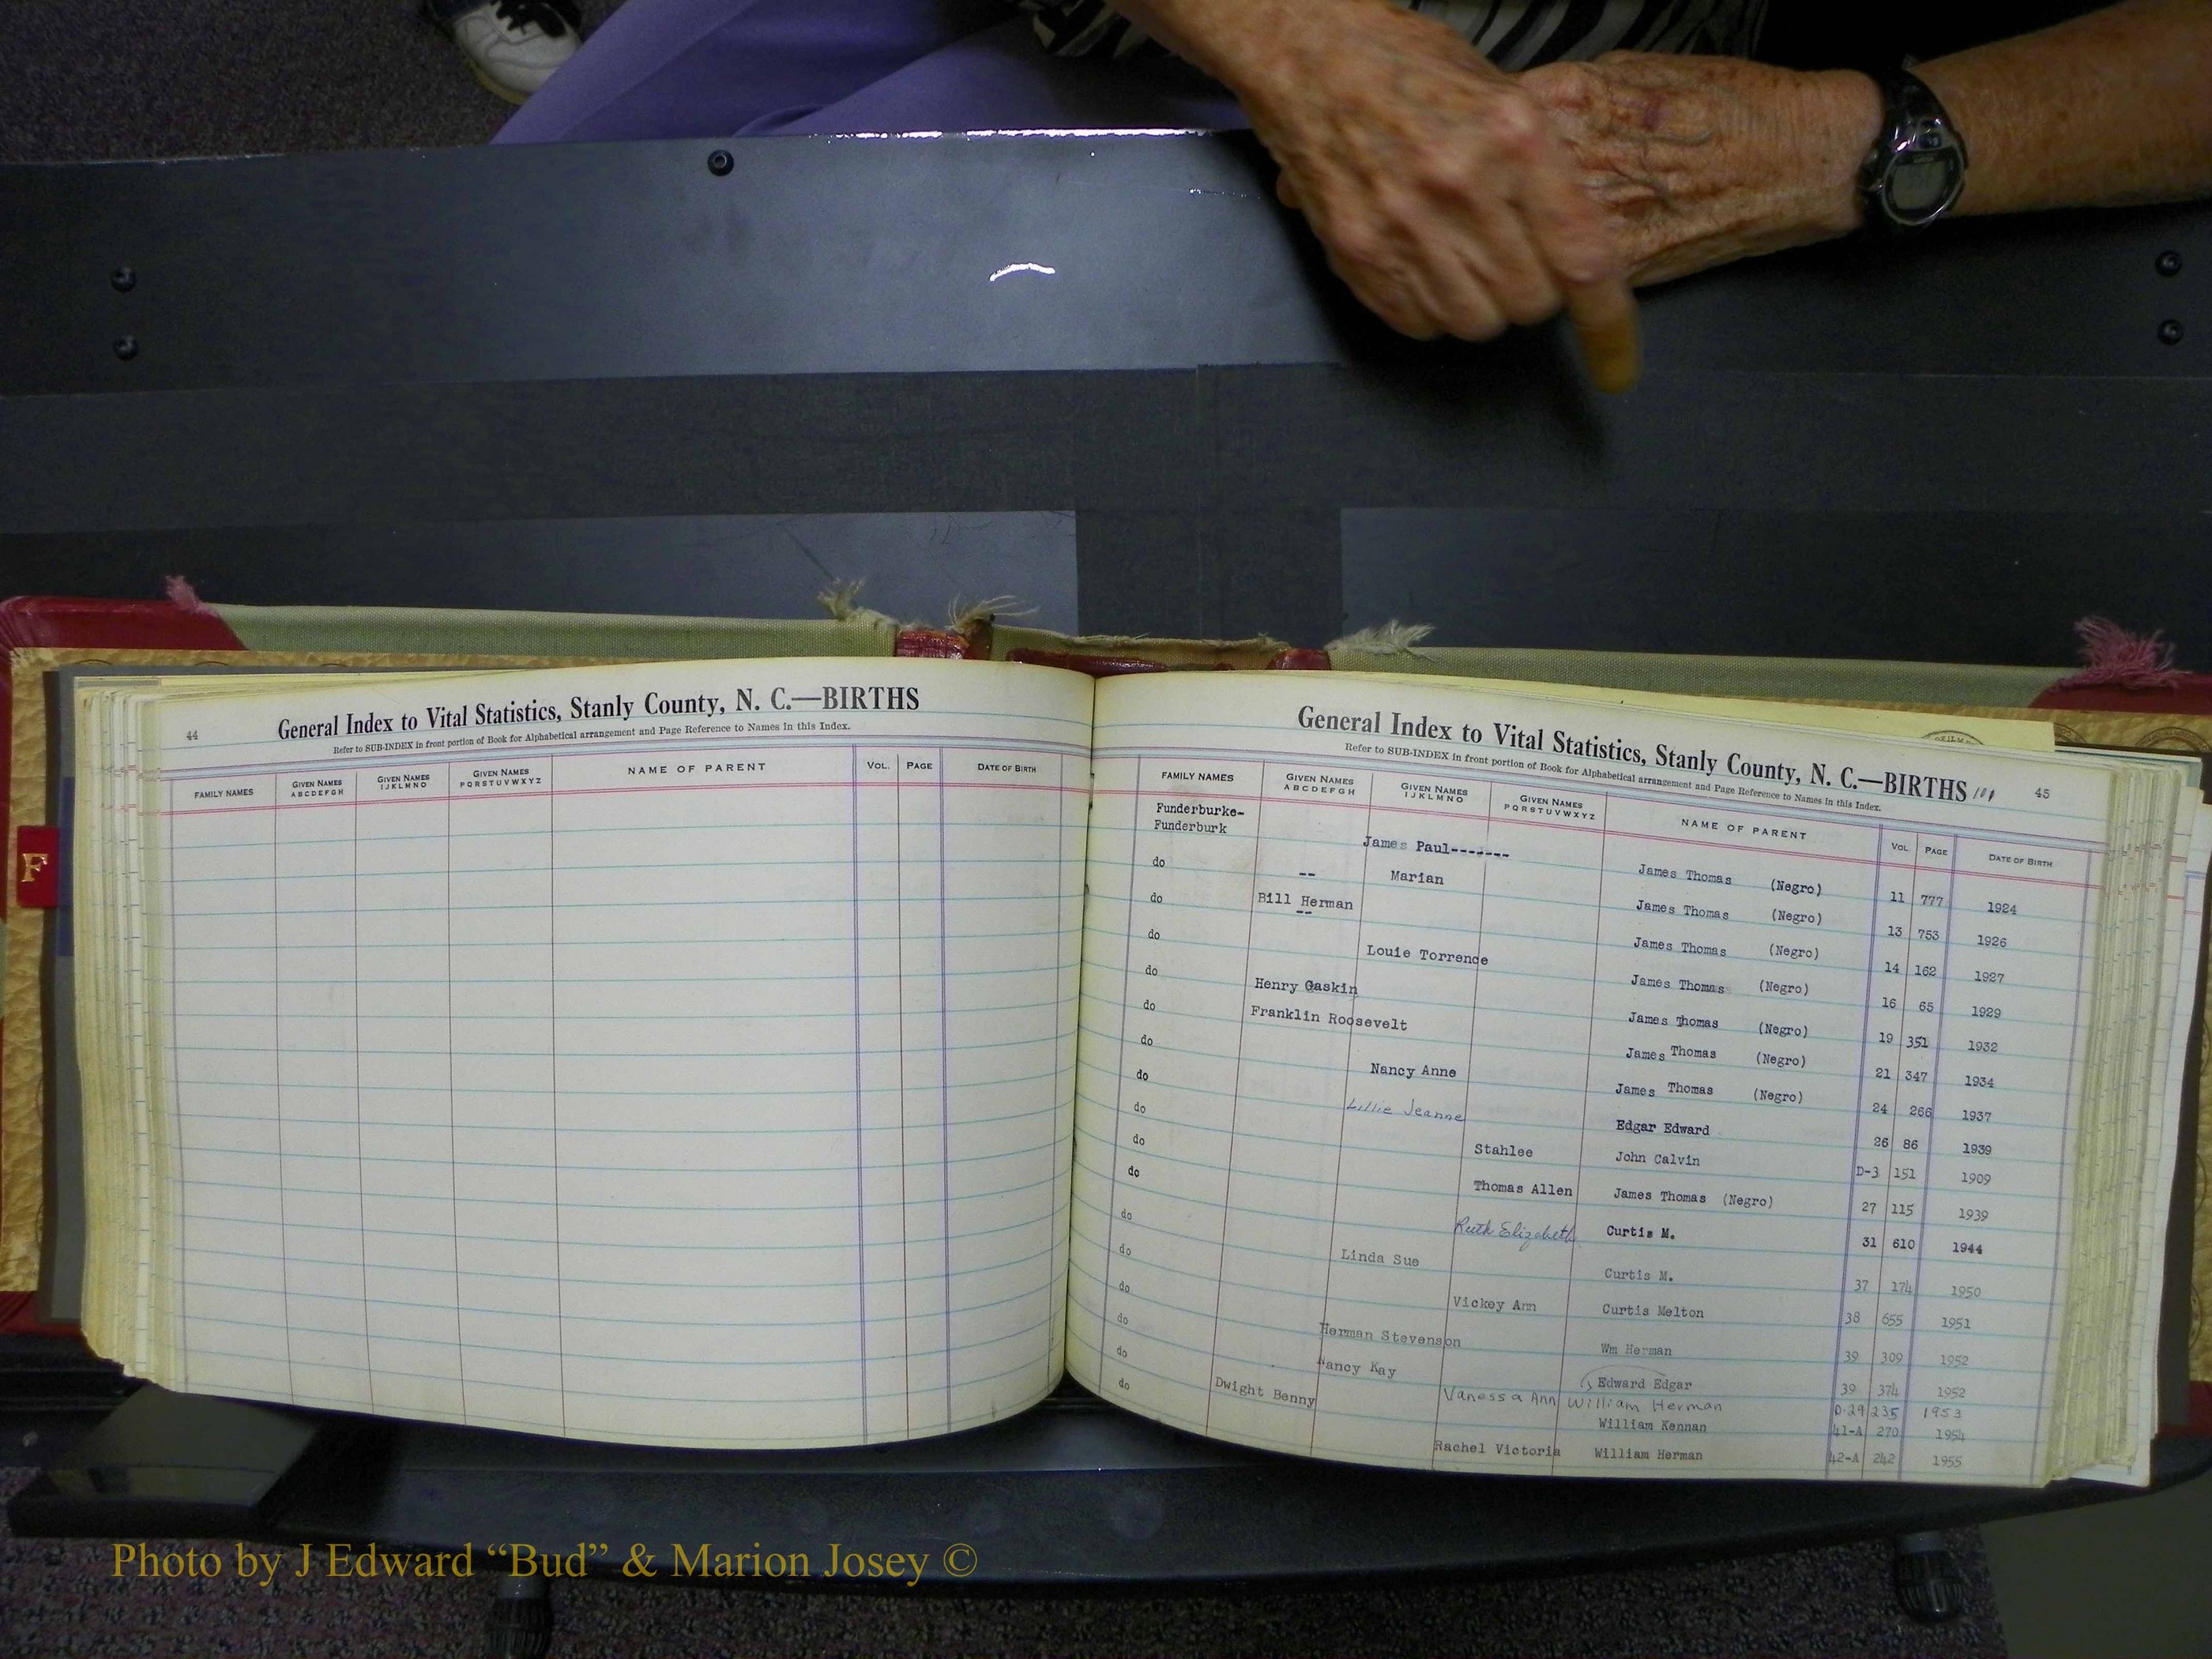 44
General Index to Vital Statistics, Stanly County, N. C.—BIRTHS
Refer to SUB-INDEX in front portion of Book for Alphabetical arrangement and Page Reference to Names in this Index.
FAMILY NAMES GIVEN NAMES ABCDEFGH GIVEN NAMES IJKLMNO GIVEN NAMES PQRSTUVWXYZ NAME OF PARENT VOL. PAGE DATE OF BIRTH
F
General Index to Vital Statistics, Stanly County, N. C.—BIRTHS 45
Refer to SUB-INDEX in front portion of Book for Alphabetical arrangement and Page Reference to Names in this Index.
FAMILY NAMES GIVEN NAMES ABCDEFGH GIVEN NAMES IJKLMNO GIVEN NAMES PQRSTUVWXYZ NAME OF PARENT VOL. PAGE DATE OF BIRTH
Funderburke-
Funderburk James Paul------- James Thomas (Negro) 11 777 1924
do -- Marian James Thomas (Negro) 13 753 1926
do Bill Herman -- James Thomas (Negro) 14 162 1927
do Louie Torrence James Thomas (Negro) 16 65 1929
do Henry Gaskin James Thomas (Negro) 19 351 1932
do Franklin Roosevelt James Thomas (Negro) 21 347 1934
do Nancy Anne James Thomas (Negro) 24 266 1937
do Lillie Jeanne Edgar Edward 26 86 1939
do Stahlee John Calvin D-3 151 1909
do Thomas Allen James Thomas (Negro) 27 115 1939
do Ruth Elizabeth Curtis M. 31 610 1944
do Linda Sue Curtis M. 37 174 1950
do Vickey Ann Curtis Melton 38 655 1951
do Herman Stevenson Wm Herman 39 309 1952
do Nancy Kay Edward Edgar 39 374 1952
Vanessa Ann William Herman D-29 235 1953
do Dwight Benny William Kennan 41-A 270 1954
do Rachel Victoria William Herman 42-A 242 1955
Photo by J Edward “Bud” & Marion Josey ©